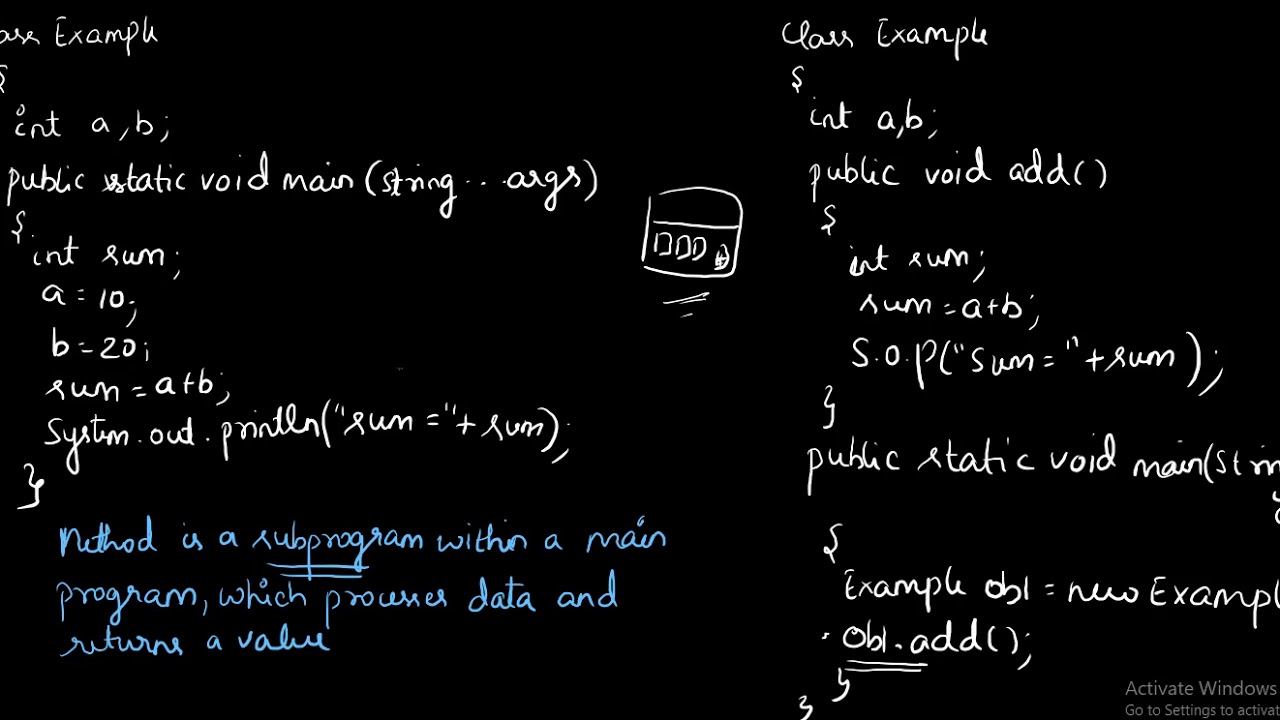 ass Example
{
int a,b;
public static void main(string...args)
{
int sum;
a=10;
b=20;
sum=a+b;
System.out.println("sum="+sum);
}
Method is a subprogram within a main
program, which processes data and
returns a value
Class Example
{
int a,b;
public void add()
{
int sum;
sum=a+b;
S.O.P("Sum="+sum);
}
public static void main(Strin
{
Example obl = new Exampl
obl.add();
}
}
Activate Windows
Go to Settings to activat